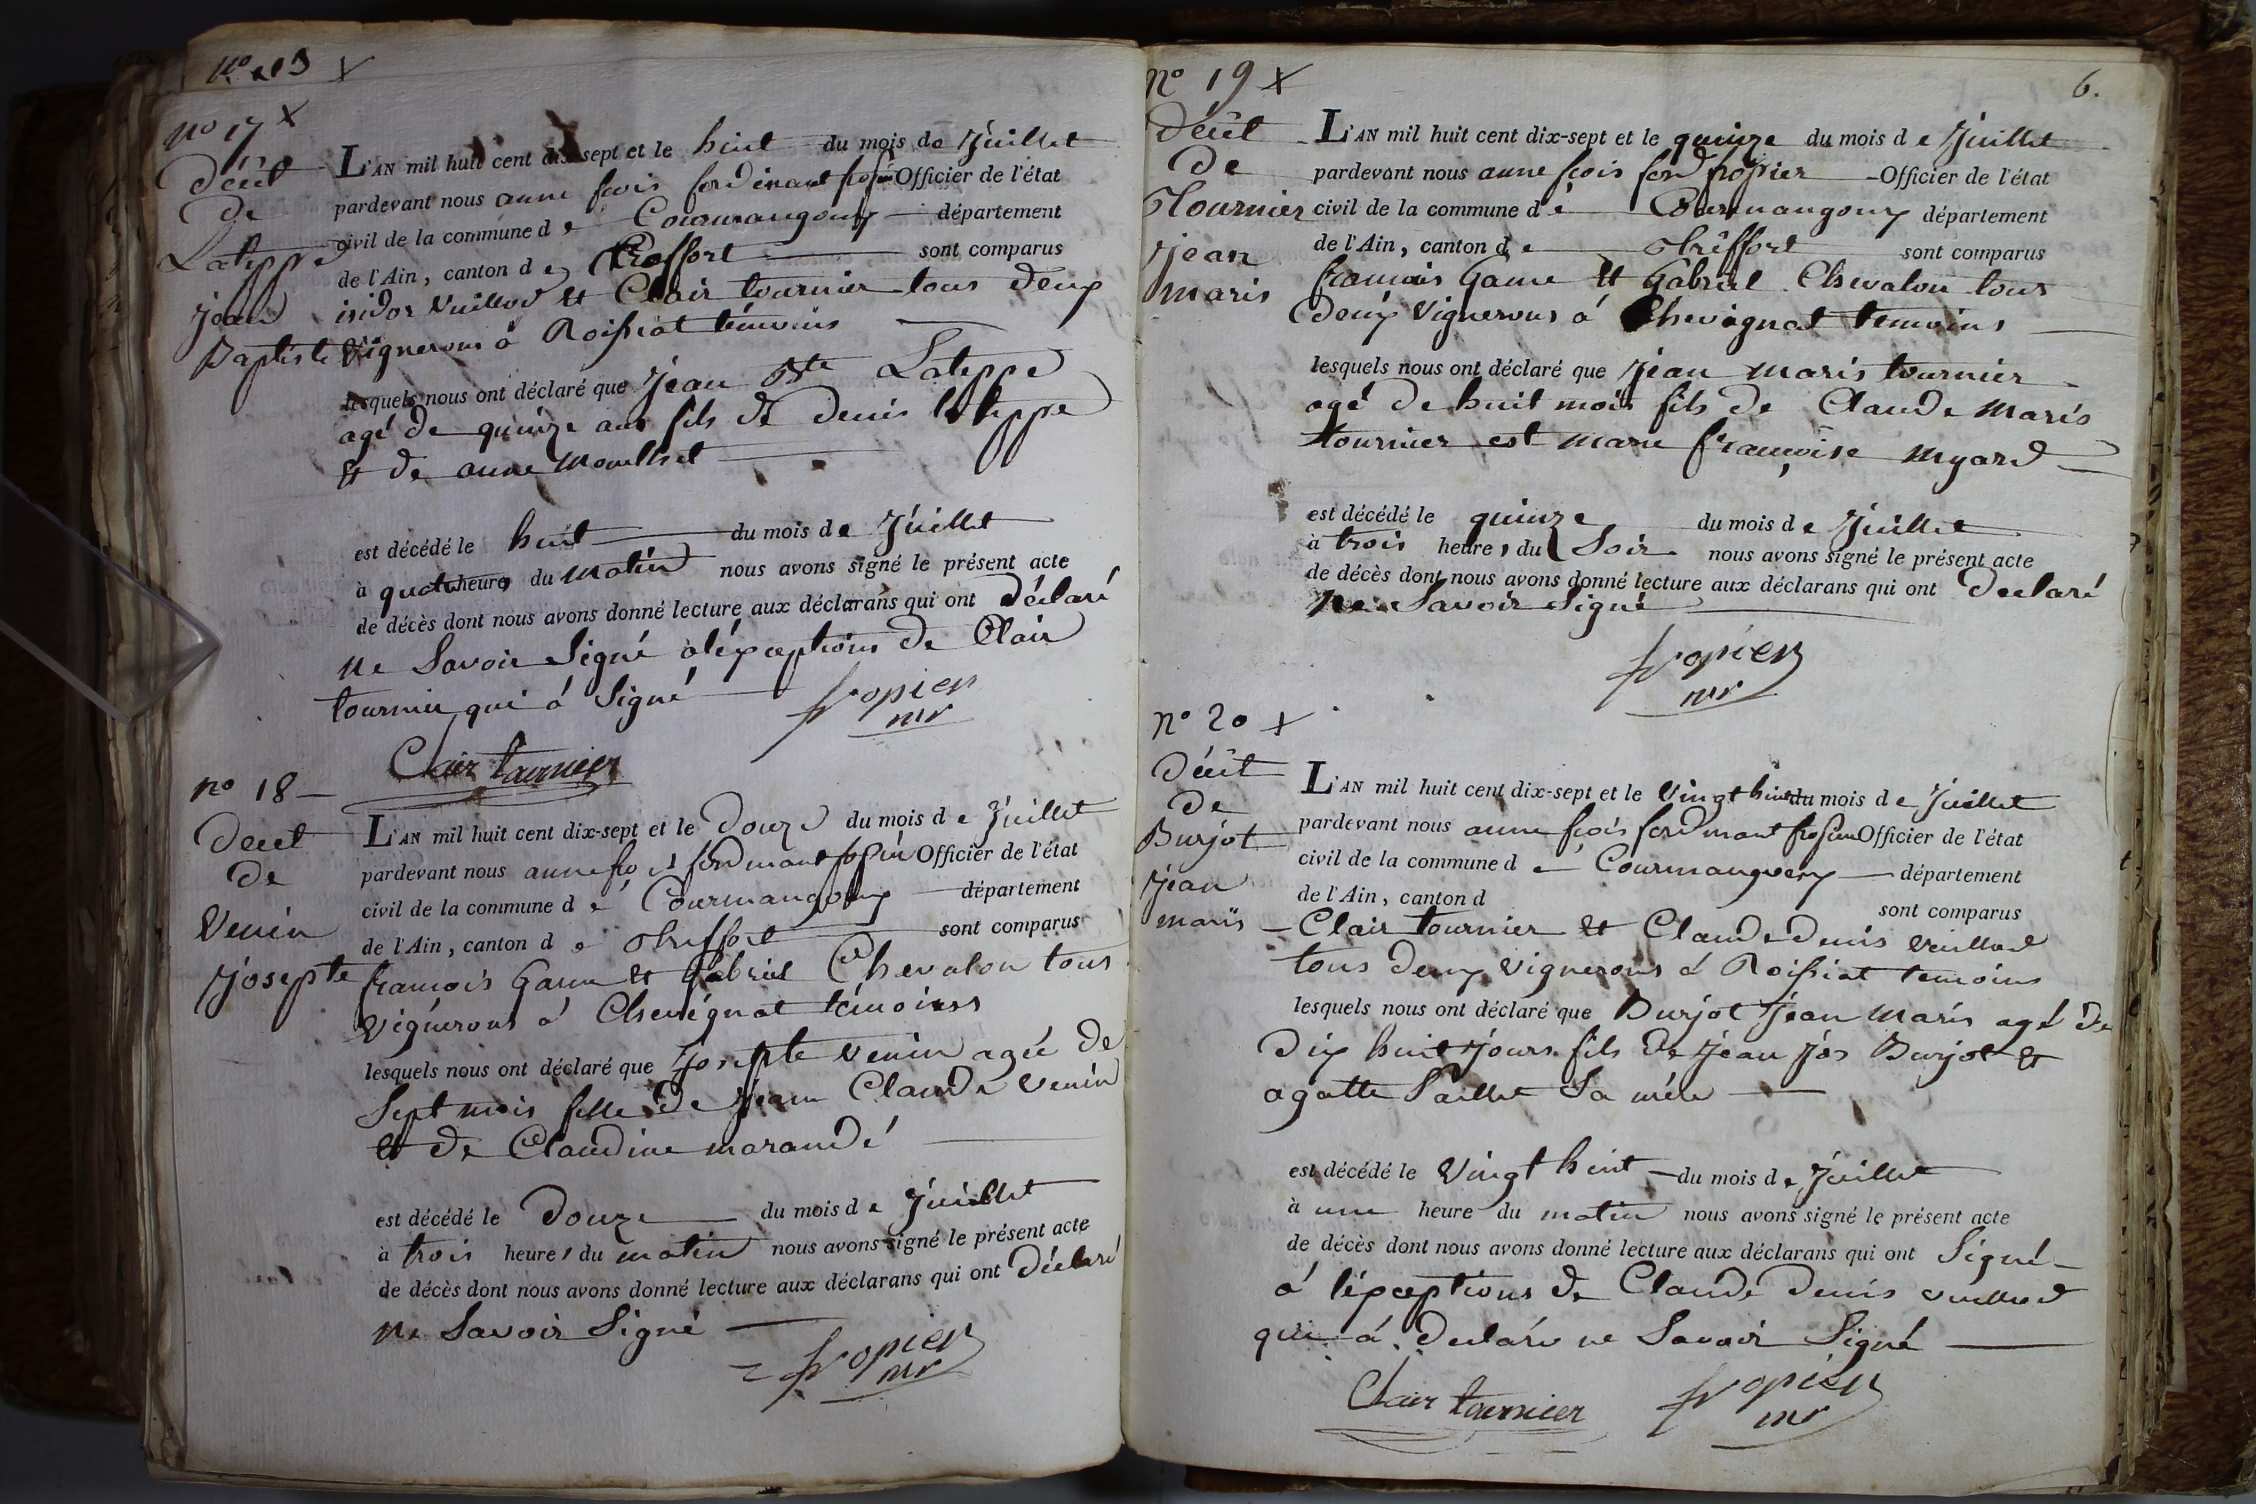 N° 17 x
Décét
de
Lateppe
jean
Baptiste
L'AN mil huit cent dix-sept et le huit du mois de Juillet
pardevant nous anne fcois ferdinant Officier de l'état
civil de la commune de Courmangoux département
de l'Ain, canton de treffort sont comparus
isidor Vuillod et Clair tournier tous deux
vignerons à Roissiat témoins
lesquels nous ont déclaré que Jean Bte Lateppe
agé de quinze ans fils de denis lateppe
et de anne
est décédé le huit du mois de Juillet
à quatre heures du matin nous avons signé le présent acte
de décès dont nous avons donné lecture aux déclarans qui ont déclaré
ne Savoir Signé a léxceptions de Clair
tournier qui á Signé
fropier
mr
Clair tournier
n° 18
Decet
de
Venin
josepte
L'AN mil huit cent dix-sept et le Douze du mois de Juillet
pardevant nous anne ferdinant Officier de l'état
civil de la commune de Courmangoux département
de l'Ain, canton de treffort sont comparus
francois Game et gabriel Chevalon tous
vignerons á Chevignat témoins
lesquels nous ont déclaré que Josepte Venin agée de
Sept mois fille de jean Claude venin
et de Claudine marandé
est décédé le Douze du mois de Juillet
à trois heures du matin nous avons signé le présent acte
de décès dont nous avons donné lecture aux déclarans qui ont Déclaré
ne Savoir Signé
fropier
mr
6.
N° 19 x
Décét
de
Tournier
jean
maris
L'AN mil huit cent dix-sept et le quinze du mois de Juillet
pardevant nous anne fcois ferd fropier Officier de l'état
civil de la commune de Courmangoux département
de l'Ain, canton de tréffort sont comparus
francois Game et Gabriel Chevalon tous
deux Vignerons á Chevignat temoins
lesquels nous ont déclaré que Jean maris tournier
agé de huit mois fils de Claude maris
tournier est marie françoise myard
est décédé le quinze du mois de Juillet
à trois heures du Soir nous avons signé le présent acte
de décès dont nous avons donné lecture aux déclarans qui ont Declaré
ne Savoir Signé
fropier
mr
n° 20 x
Décét
de
Burjot
jean
maris
L'AN mil huit cent dix-sept et le Vingt huit du mois de Juillet
pardevant nous anne fcois ferdinant fropier Officier de l'état
civil de la commune de Courmangoux département
de l'Ain, canton d sont comparus
Clair tournier et Claude denis vuillod
tous deux vignerons á Roissiat temoins
lesquels nous ont déclaré que Burjot Jean maris agé de
Dix huit jours fils de jean jos Burjot et
agatte Paillet Sa mére
est décédé le Vingt huit du mois de Juillet
à une heure du matin nous avons signé le présent acte
de décès dont nous avons donné lecture aux déclarans qui ont Signé
á léxceptions de Claude denis vuillod
qui á déclaré ne Savoir Signé
Clair tournier
fropier
mr